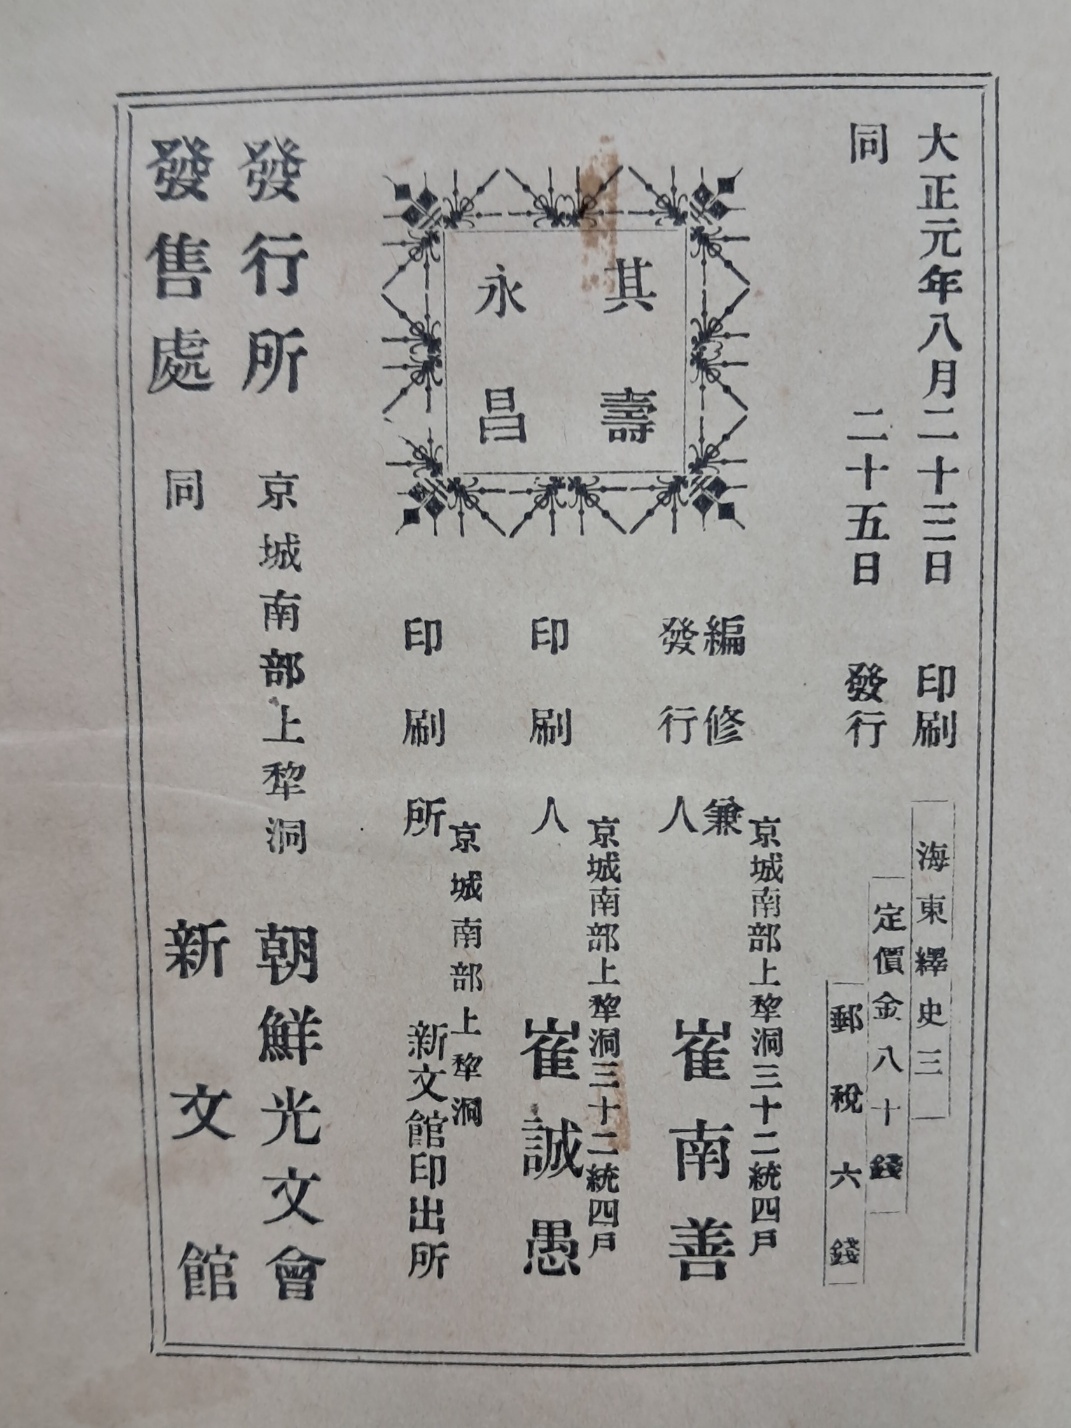 大正元年八月二十三日 印刷
同 二十五日 發行
海東繹史 三
定價金八十錢
郵稅六錢
其壽
永昌
編修兼
發行人
京城南部上犂洞三十二統四戶
崔南善
印刷人
京城南部上犂洞三十二統四戶
崔誠愚
印刷所
京城南部上犂洞
新文館印出所
發行所 京城南部上犂洞 朝鮮光文會
發售處 同 新文館